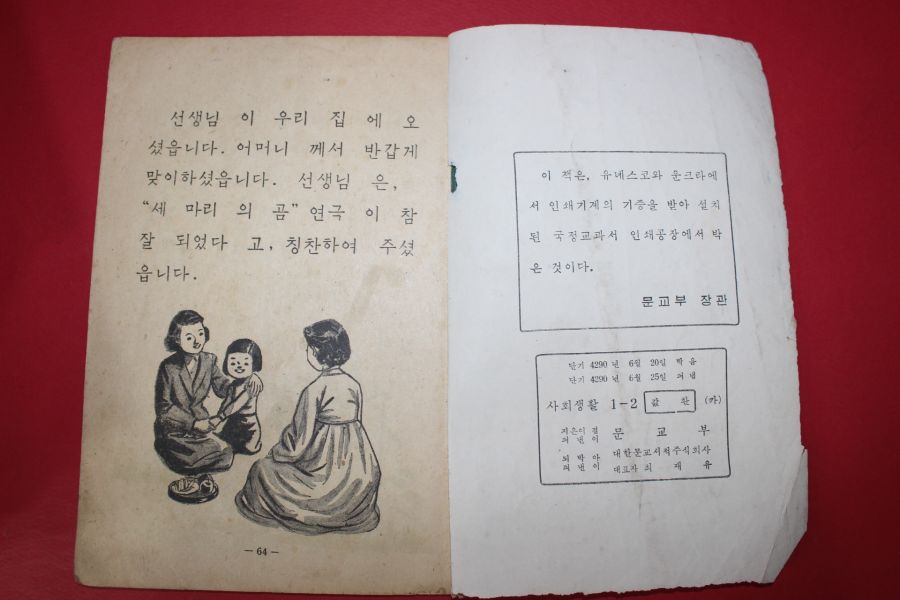 선생님 이 우리 집 에 오
셨읍니다. 어머니 께서 반갑게
맞이하셨읍니다. 선생님 은,
“세 마리 의 곰” 연극 이 참
잘 되었다 고, 칭찬하여 주셨
읍니다.
— 64 —
이 책은, 유네스코와 운크라에
서 인쇄기계의 기증을 받아 설치
된 국정교과서 인쇄공장에서 박
은 것이다.
문교부 장관
단기 4290 년 6월 20일 박음
단기 4290 년 6월 25일 펴냄
사회생활 1-2 값 환 (카)
지은이 겸
펴낸이 문교부
되박아
펴낸이 대한문교서적주식회사
대표자 최 재 유